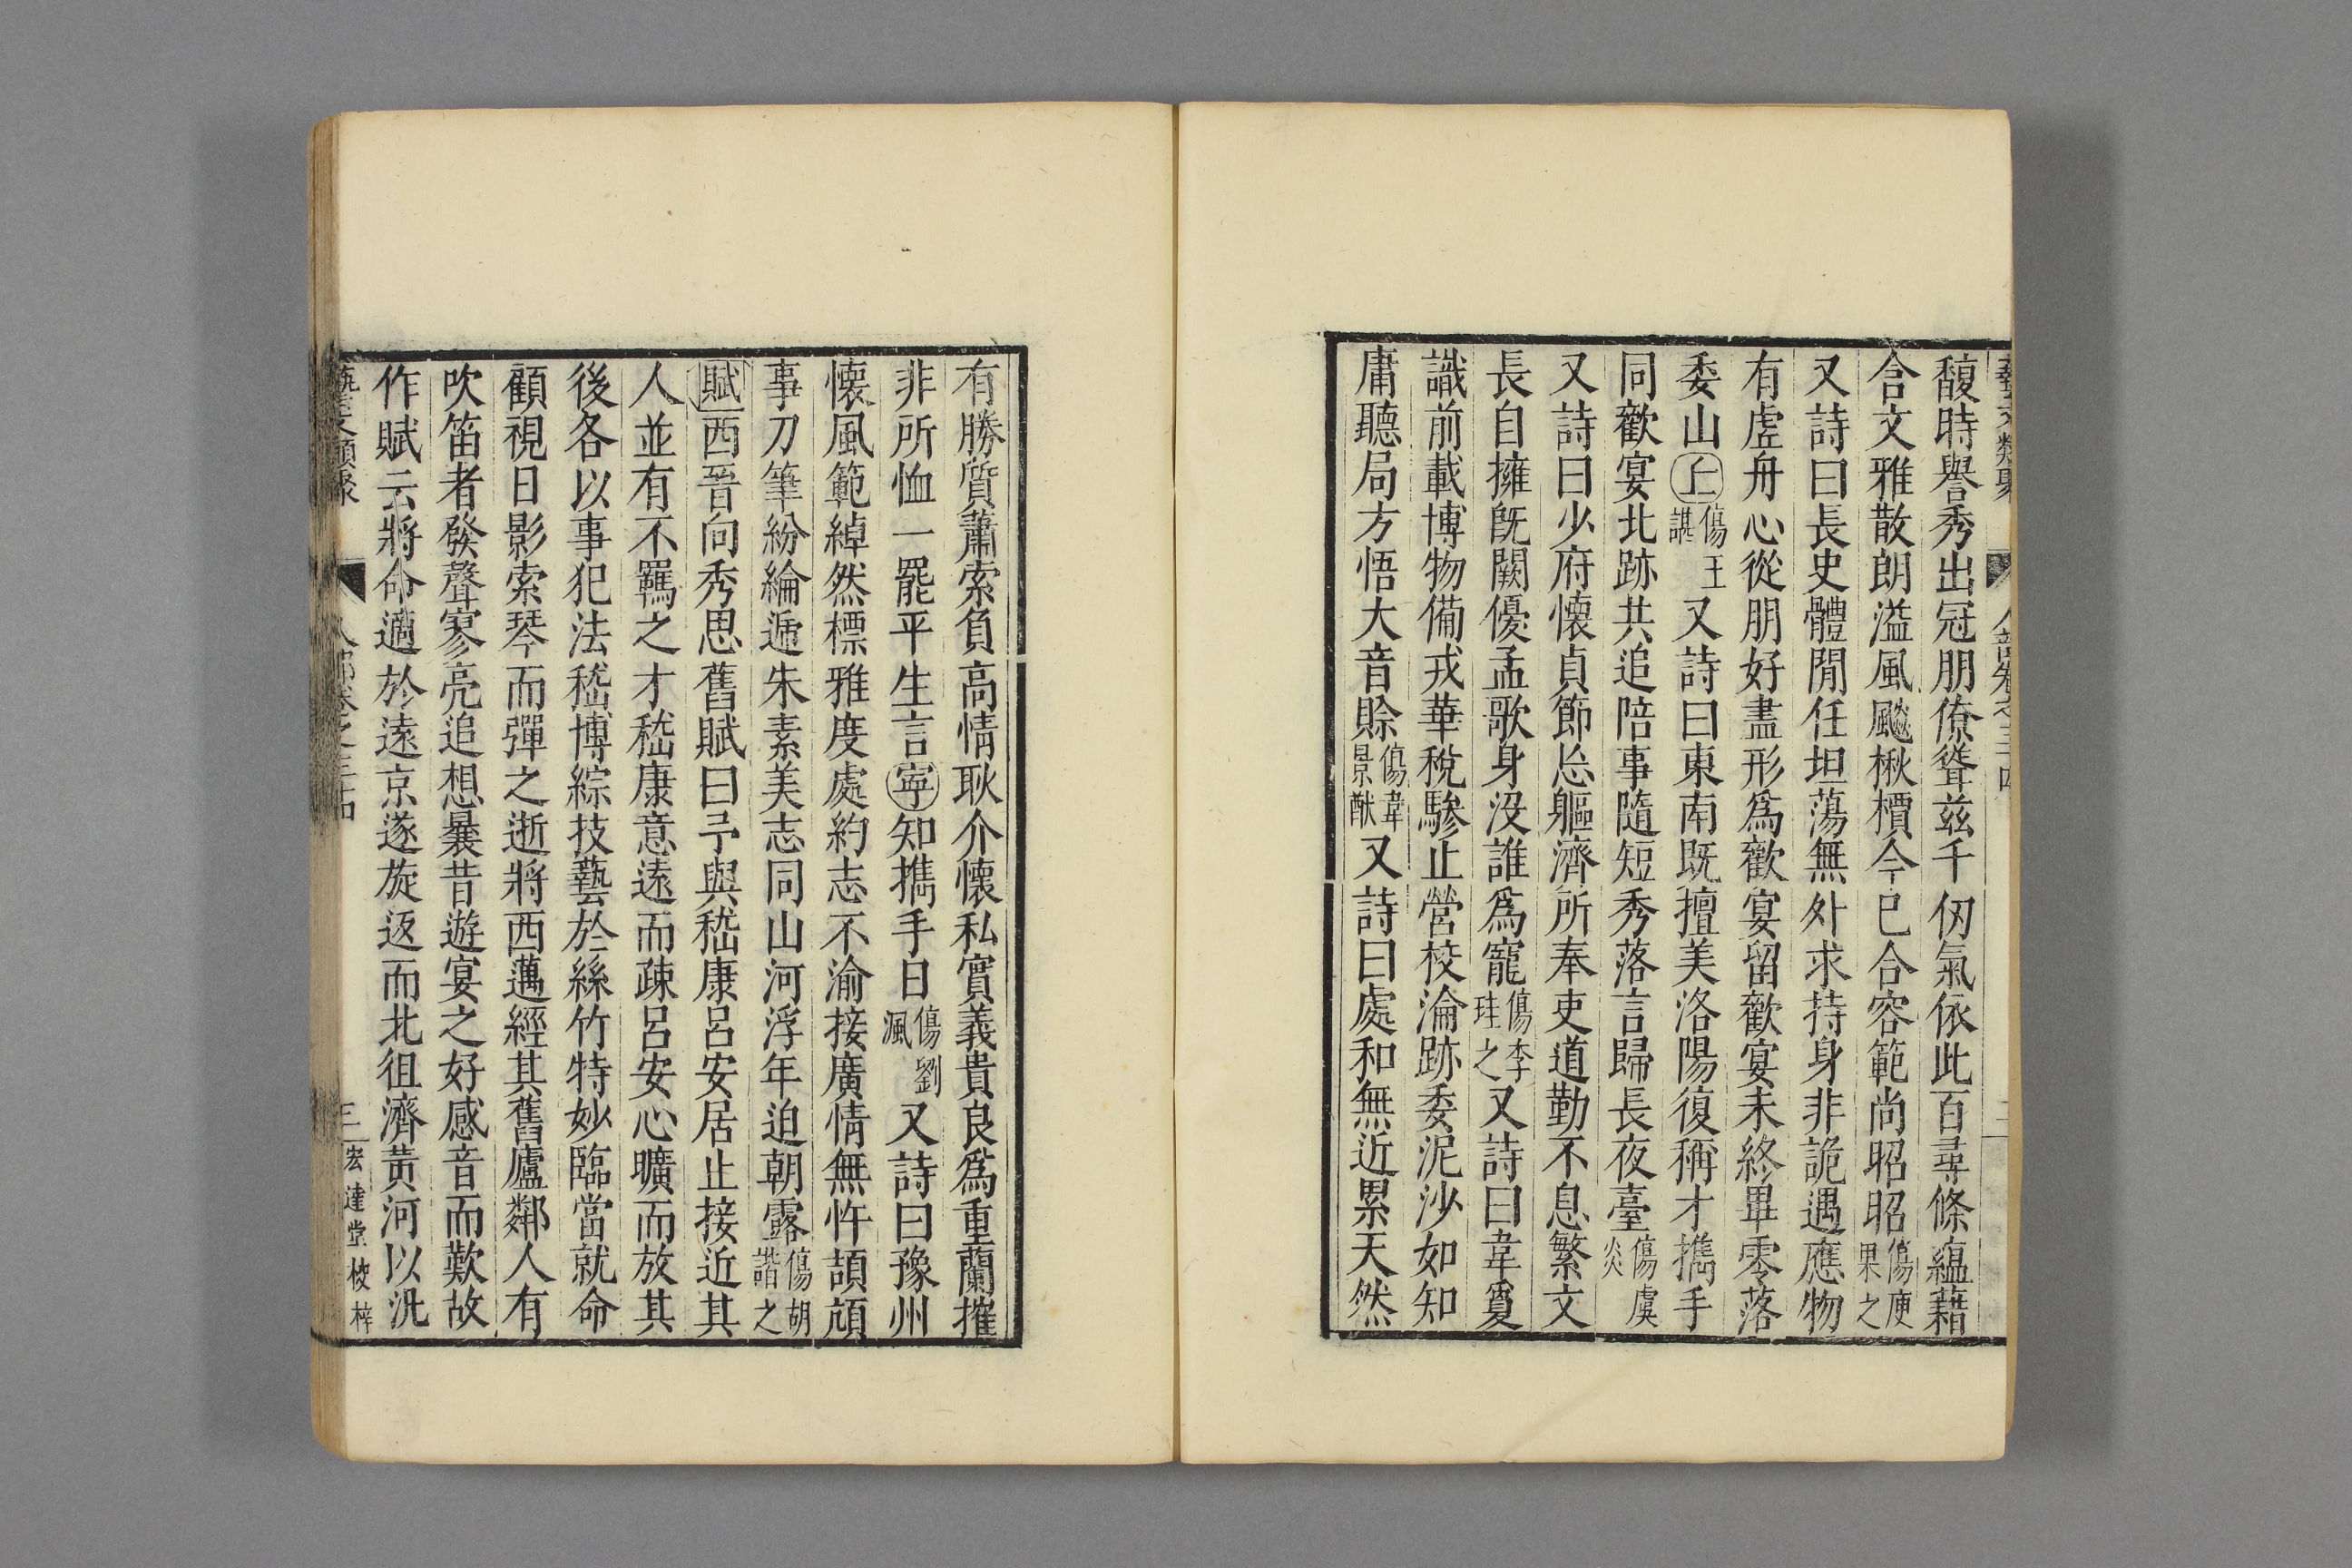 藝文類聚 人部卷之三十四 二
馥時譽秀出冠朋僚聳茲千仞氣依此百尋條蘊藉
含文雅散朗溢風飈楸檟今已合容範尚昭昭傷庾果之
又詩曰長史體閒任坦蕩無外求持身非詭遇應物
有虛舟心從朋好盡形為歡宴留歡宴未終畢零落
委山丘傷王諶又詩曰東南既擅美洛陽復稱才擕手
同歡宴北跡共追陪事隨短秀落言歸長夜臺傷虞炎
又詩曰少府懷貞節忘軀濟所奉吏道勤不息繁文
長自擁旣闕優孟歌身沒誰為寵傷李珪之又詩曰韋叟
識前載博物備戎華稅驂止營校淪跡委泥沙如知
庸聽局方悟大音賒傷韋景猷又詩曰處和無近累天然
有勝質蕭索負高情耿介懷私實義貴良為重蘭摧
非所恤一罷平生言寧知擕手日傷劉渢又詩曰豫州
懷風範綽然標雅度處約志不渝接廣情無忤頡頏
事刀筆紛綸遞朱素美志同山河浮年迫朝露傷胡諧之
賦西晉向秀思舊賦曰予與嵇康呂安居止接近其
人並有不羈之才嵇康意遠而疎呂安心曠而放其
後各以事犯法嵇博綜技藝於絲竹特妙臨當就命
顧視日影索琴而彈之逝將西邁經其舊廬鄰人有
吹笛者發聲寥亮追想曩昔遊宴之好感音而歎故
作賦云將命適於遠京遂旋返而北徂濟黃河以汎
藝文類聚 人部卷之三十四 三 宏達堂校梓